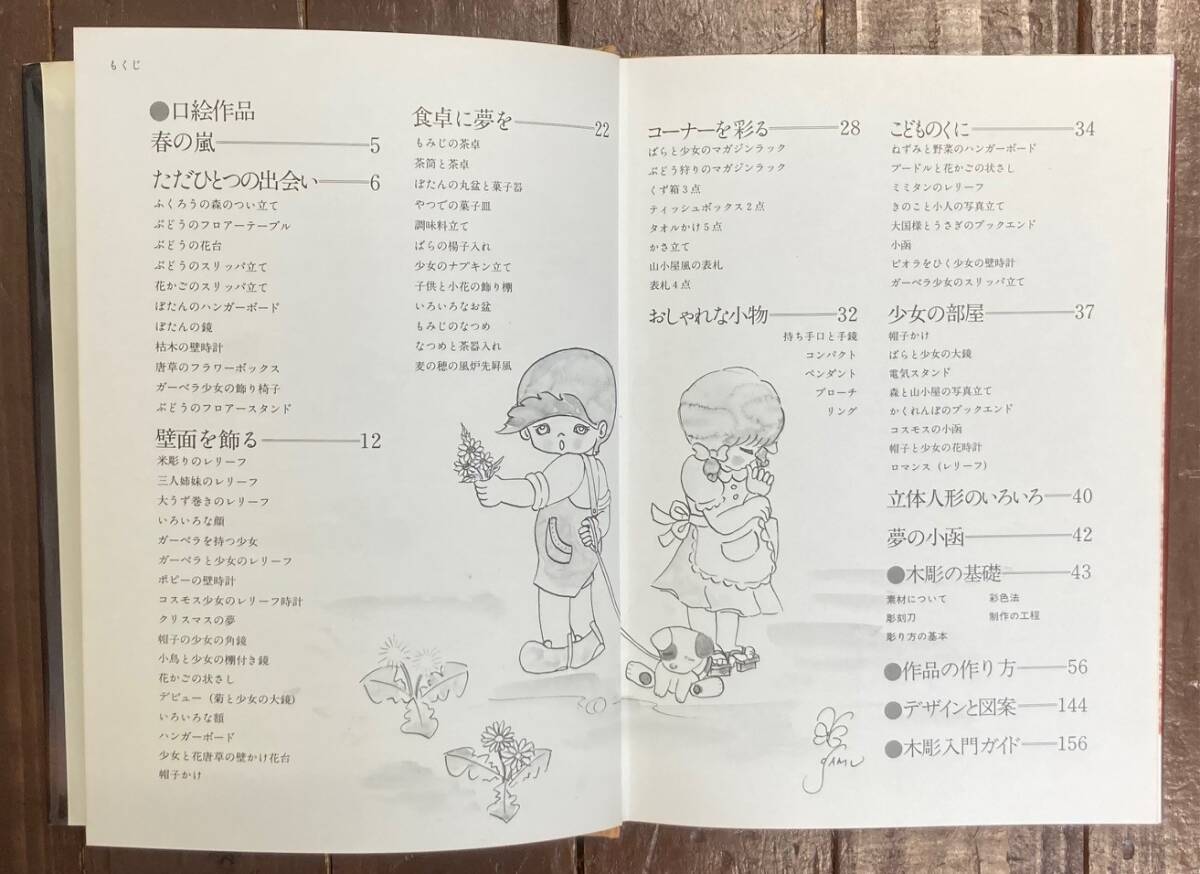 もくじ
●口絵作品
春の嵐 5
ただひとつの出会い 6
ふくろうの森のつい立て
ぶどうのフロアーテーブル
ぶどうの花台
ぶどうのスリッパ立て
花かごのスリッパ立て
ぼたんのハンガーボード
ぼたんの鏡
枯木の壁時計
唐草のフラワーボックス
ガーベラ少女の飾り椅子
ぶどうのフロアースタンド
壁面を飾る 12
米彫りのレリーフ
三人姉妹のレリーフ
大うず巻きのレリーフ
いろいろな顔
ガーベラを持つ少女
ガーベラと少女のレリーフ
ポピーの壁時計
コスモス少女のレリーフ時計
クリスマスの夢
帽子の少女の角鏡
小鳥と少女の棚付き鏡
花かごの状さし
デビュー（菊と少女の大鏡）
いろいろな額
ハンガーボード
少女と花唐草の壁かけ花台
帽子かけ
食卓に夢を 22
もみじの茶卓
茶筒と茶卓
ぼたんの丸盆と菓子器
やつでの菓子皿
調味料立て
ばらの楊子入れ
少女のナプキン立て
子供と小花の飾り棚
いろいろなお盆
もみじのなつめ
なつめと茶器入れ
麦の穂の風炉先屛風
コーナーを彩る 28
ばらと少女のマガジンラック
ぶどう狩りのマガジンラック
くず箱3点
ティッシュボックス2点
タオルかけ5点
かさ立て
山小屋風の表札
表札4点
おしゃれな小物 32
持ち手口と手鏡
コンパクト
ペンダント
ブローチ
リング
こどものくに 34
ねずみと野菜のハンガーボード
プードルと花かごの状さし
ミミタンのレリーフ
きのこと小人の写真立て
大国様とうさぎのブックエンド
小函
ビオラをひく少女の壁時計
ガーベラ少女のスリッパ立て
少女の部屋 37
帽子かけ
ばらと少女の大鏡
電気スタンド
森と山小屋の写真立て
かくれんぼのブックエンド
コスモスの小函
帽子と少女の花時計
ロマンス（レリーフ）
立体人形のいろいろ 40
夢の小函 42
●木彫の基礎 43
素材について 彩色法
彫刻刀 制作の工程
彫り方の基本
●作品の作り方 56
●デザインと図案 144
●木彫入門ガイド 156